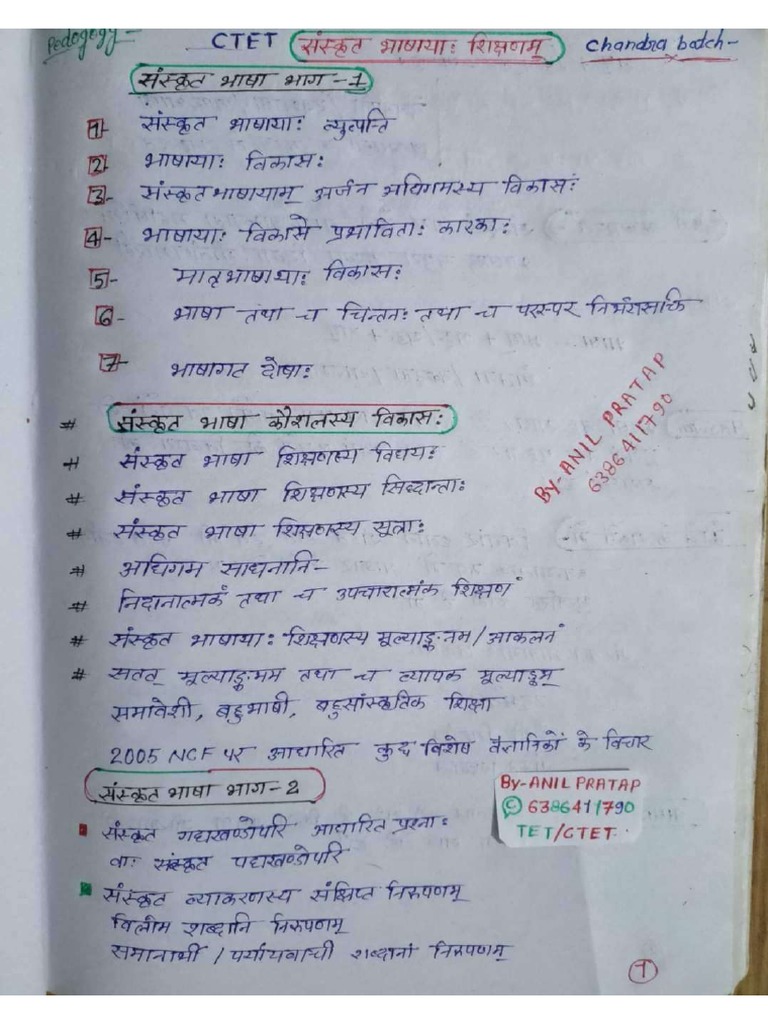 Pedogogy-
CTET संस्कृत भाषायाः शिक्षणम् Chandra batch-
संस्कृत भाषा भाग-1
1- संस्कृत भाषायाः व्युत्पत्ति
2- भाषायाः विकासः
3- संस्कृतभाषायाम् अर्जन अधिगमस्य विकासः
4- भाषायाः विकासे प्रभाविताः कारकाः
5- मातृभाषायाः विकासः
6- भाषा तथा च चिन्तनः तथा च परस्पर
7- भाषागत दोषाः
# संस्कृत भाषा कौशलस्य विकासः
# संस्कृत भाषा शिक्षणस्य विधयः
# संस्कृत भाषा शिक्षणस्य सिद्धान्ताः
# संस्कृत भाषा शिक्षणस्य सूत्राः
# अधिगम साधनानि-
# निदानात्मकं तथा च उपचारात्मंक शिक्षणं
# संस्कृत भाषायाः शिक्षणस्य मूल्याङ्कनम/आकलनं
# सतत् मूल्याङ्कनम तथा च व्यापक मूल्याङ्कम्
समावेशी, बहुभाषी, बहुसांस्कृतिक शिक्षा
2005 NCF पर आधारित कुछ विशेष वैज्ञानिकों के विचार
By-ANIL PRATAP
6386411790
संस्कृत भाषा भाग-2
By-ANIL PRATAP
6386411790
TET/CTET.
संस्कृत गद्यखण्डोपरि आधारित प्रश्नाः
वाः संस्कृत पद्यखण्डोपरि
संस्कृत व्याकरणस्य संक्षिप्त निरूपणम्
विलोम शब्दानि निरूपणम्
समानार्थी / पर्यायवाची शब्दानां निरूपणम्
1